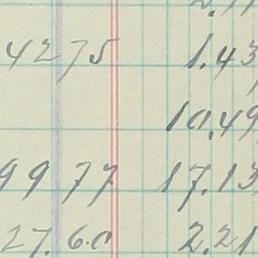 4275 1.43
10.49
9977 17.13
27.60 2.21